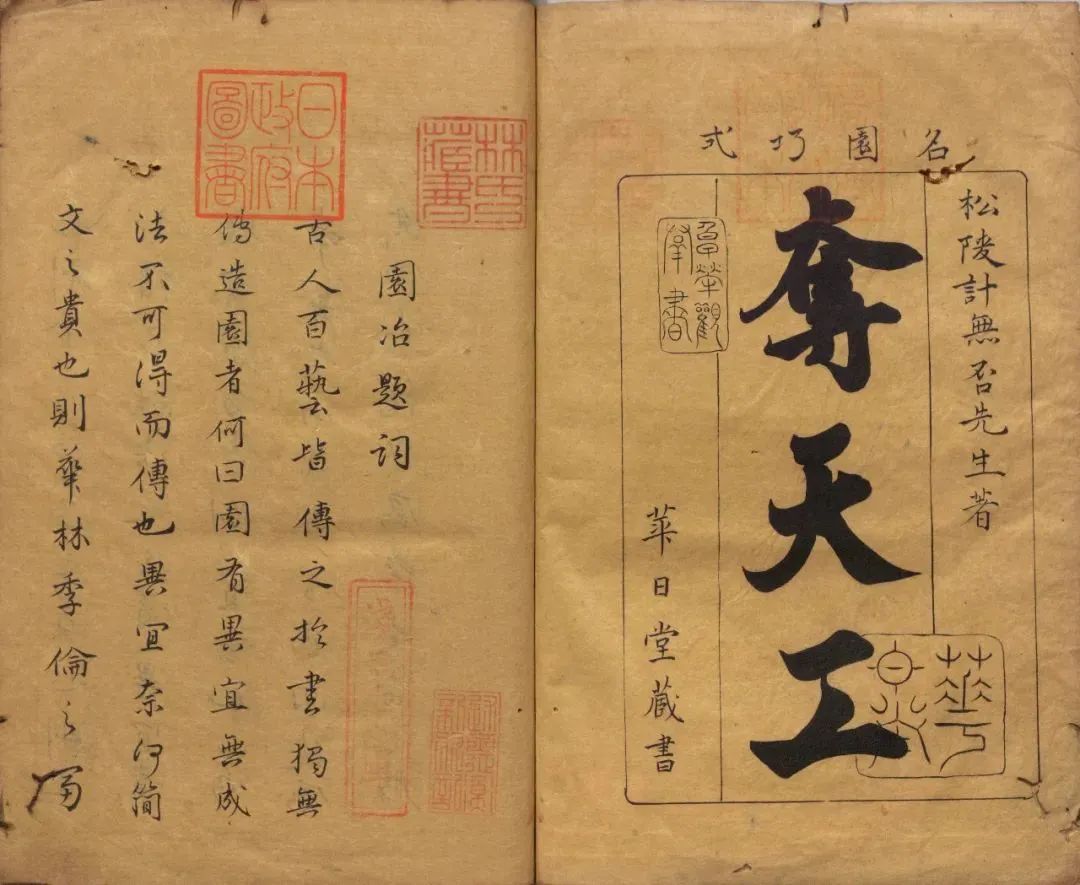 名園巧式
松陵計無否先生著
奪天工
華日堂藏書
林氏藏書
日本政府圖書
園冶題詞
古人百藝皆傳之於書獨無
傳造園者何曰園有異宜無成
法不可得而傳也異宜奈何簡
文之貴也則華林季倫之富